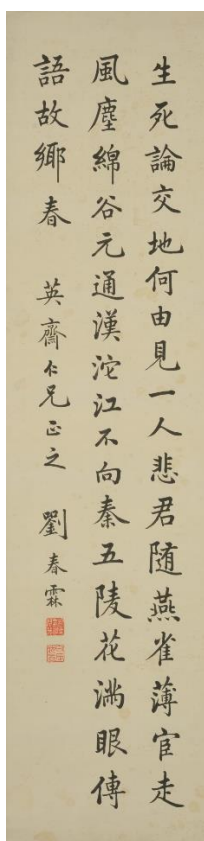 生死論交地何由見一人悲君随燕雀薄宦走
風塵綿谷元通漢沱江不向秦五陵花満眼傳
語故鄉春　英齋仁兄正之　劉春霖